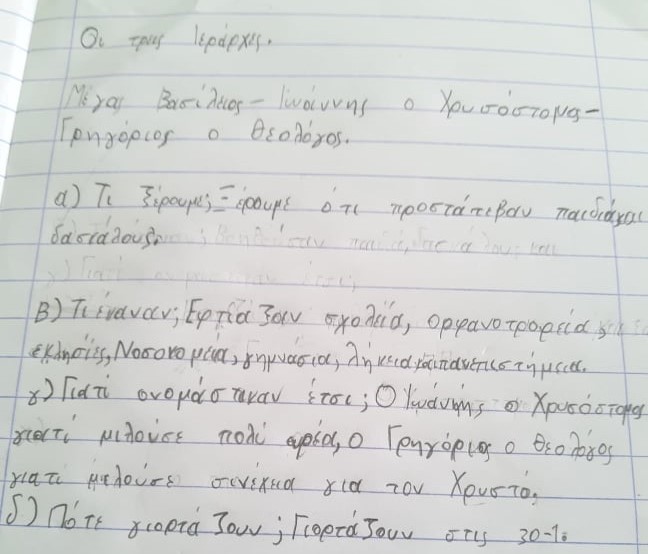 Οι τρεις Ιεράρχες.
Μέγας Βασίλειος - Ιωάννης ο Χρυσόστομος -
Γρηγόριος ο Θεολόγος.
α) Τι ξέρουμε; Ξέρουμε ότι προστάτεβαν παιδιά και
δασκάλους.
Β) Τι έκαναν; Εφτιάζουν σχολεία, ορφανοτροφεία
εκλησίες, Νοσοκομεία, γημνάσια, λήκεια και πανεπιστήμεια.
γ) Γιατί ονομάστικαν έτσι; Ο Ιωάννης ο Χρυσόστομος
γιατί μιλούσε πολί ωρέα, ο Γρηγόριος ο Θεολόγος
γιατί μιλούσε σινέχεια για τον Χρυστό.
δ) Πότε γιορτάζουν; Γιορτάζουν στις 30-1.